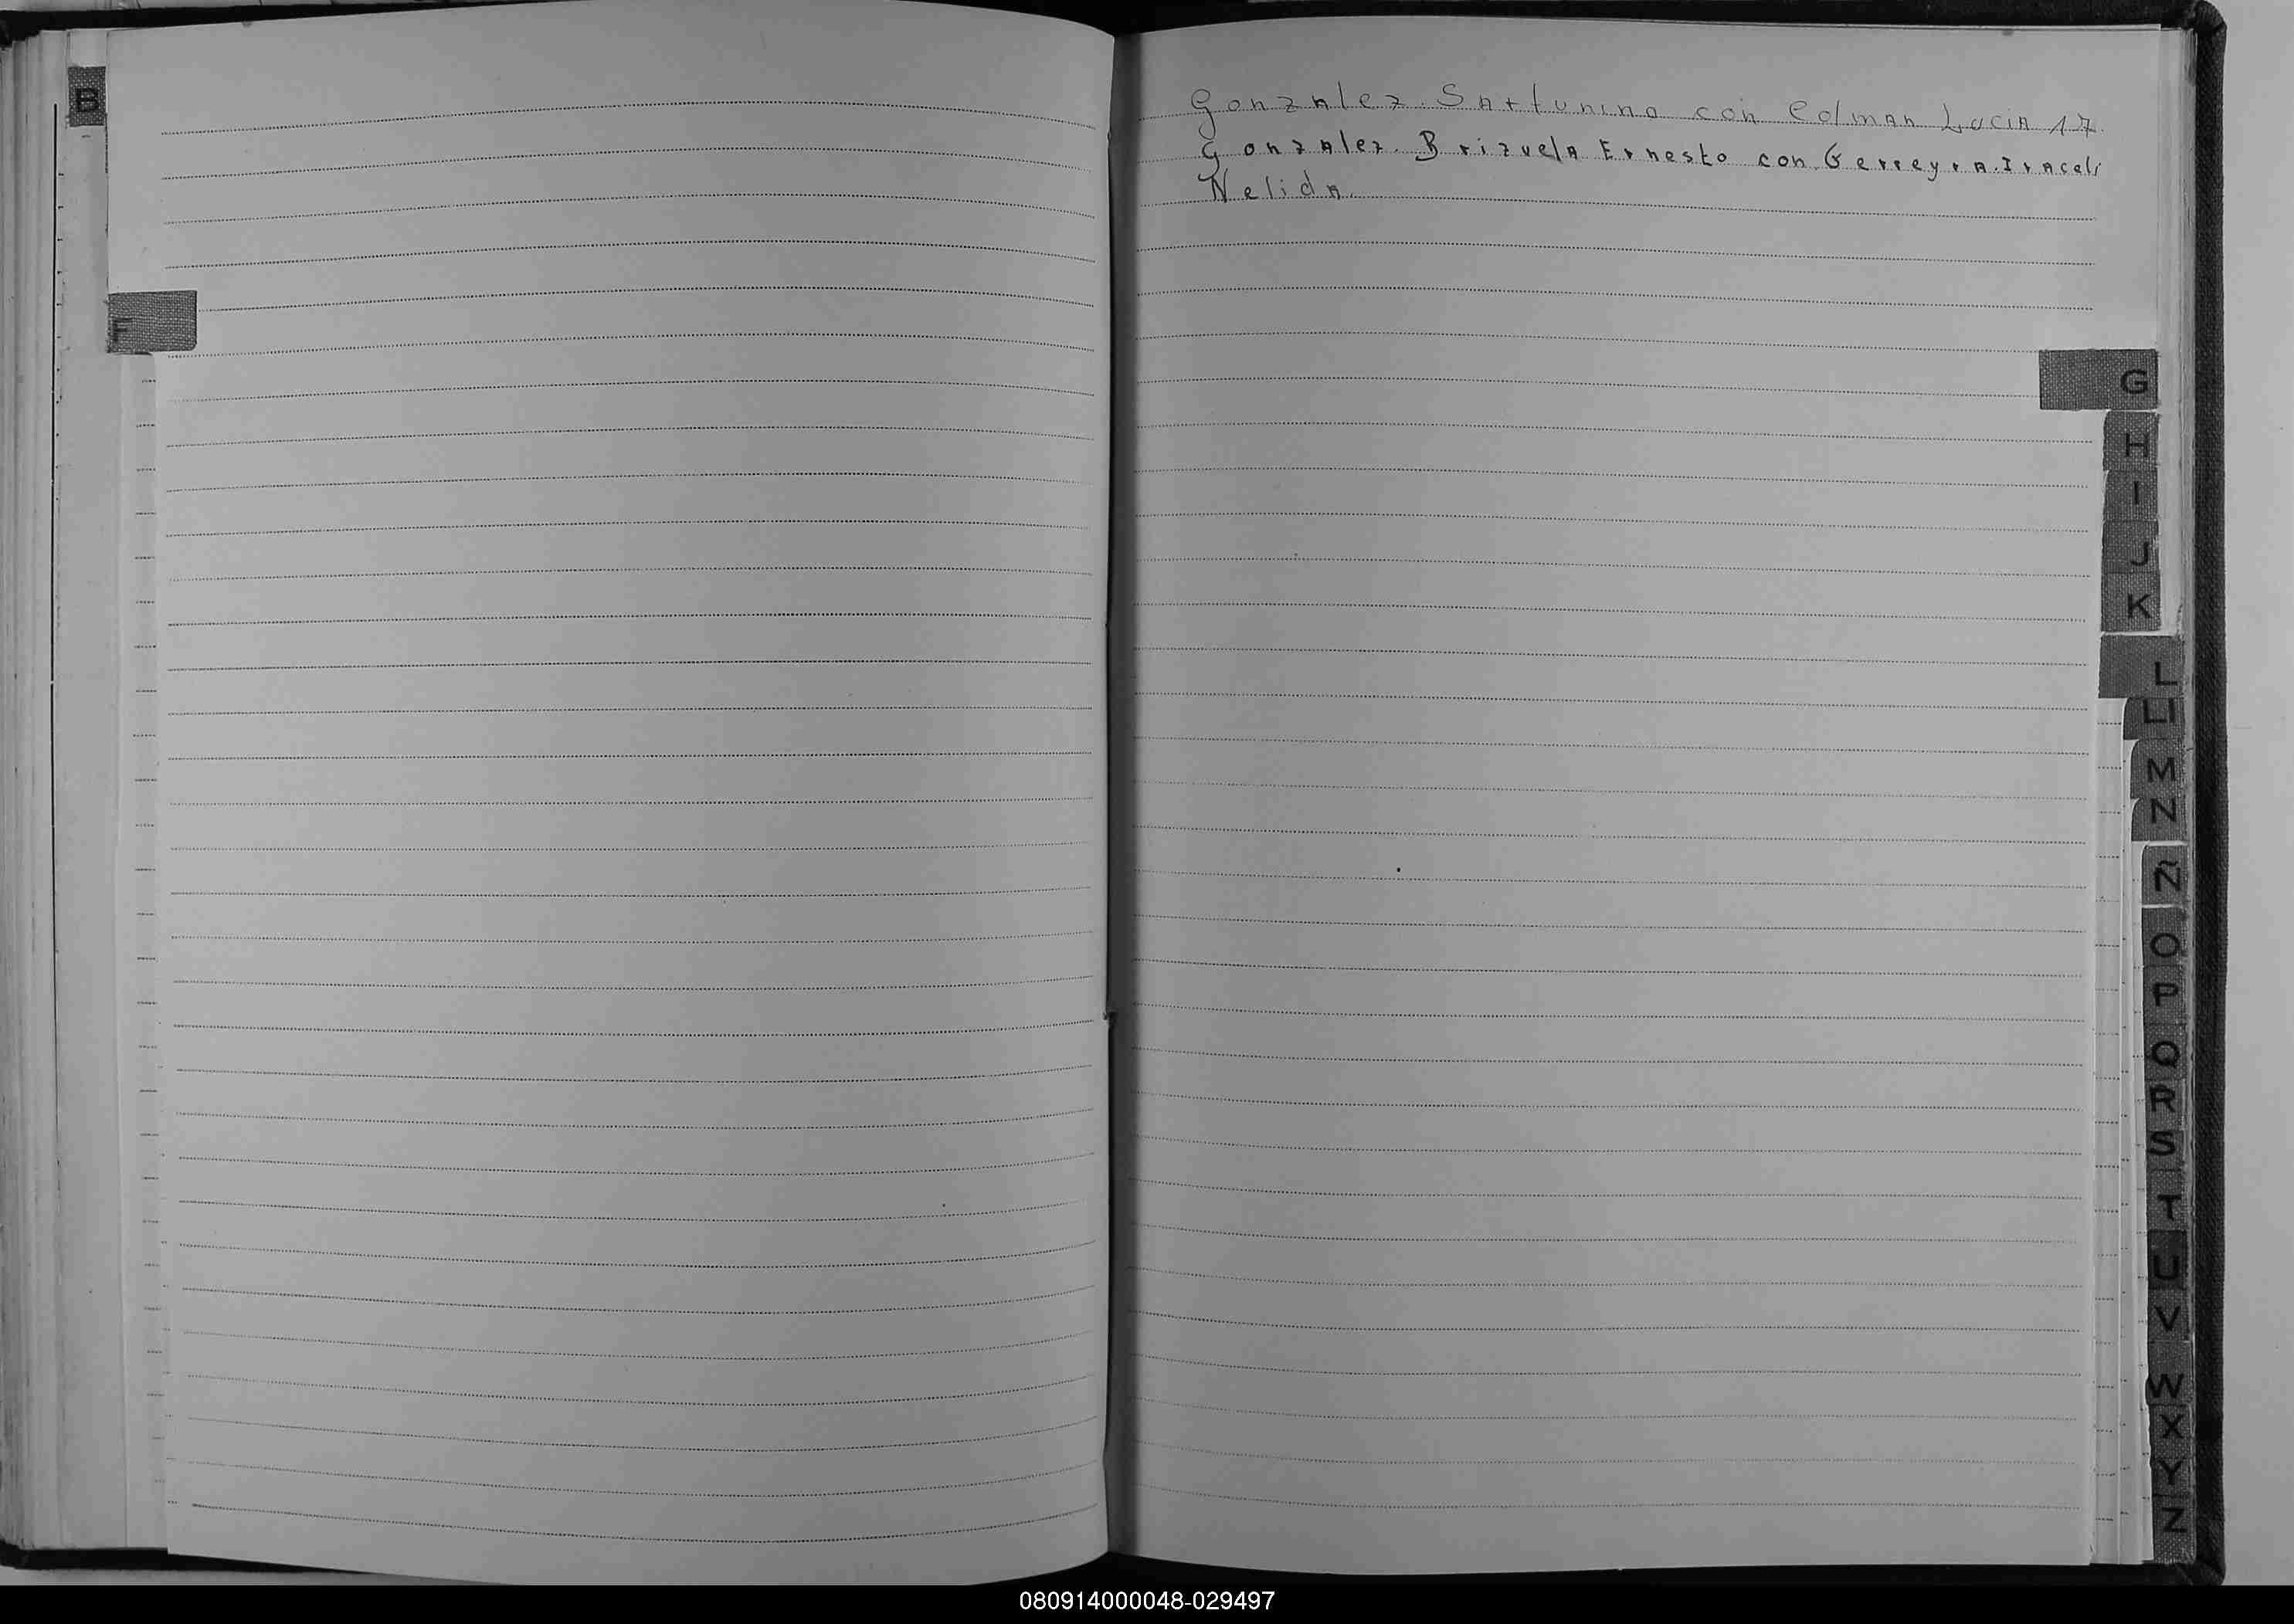 B
F
Gonzalez. Saturnino con Colman Lucia 17.
Gonzalez. Brizuela Ernesto con Gerreyra. Iraceli
Nelida.
G
H
I
J
K
L
Ll
M
N
Ñ
O
P
Q
R
S
T
U
V
W
X
Y
Z
080914000048-029497